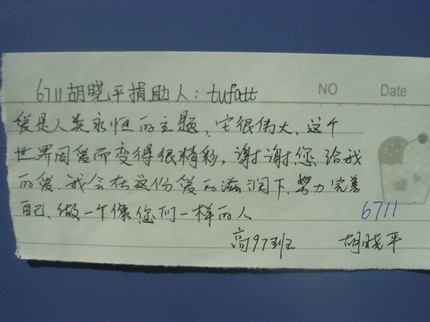 6711胡晓平捐助人：tufatt
NO Date
爱是人类永恒的主题，它很伟大，这个
世界因爱而变得很精彩，谢谢您给我
的爱，我会在这份爱的滋润下，努力完美
自己，做一个像您们一样的人
6711
高97班 胡晓平